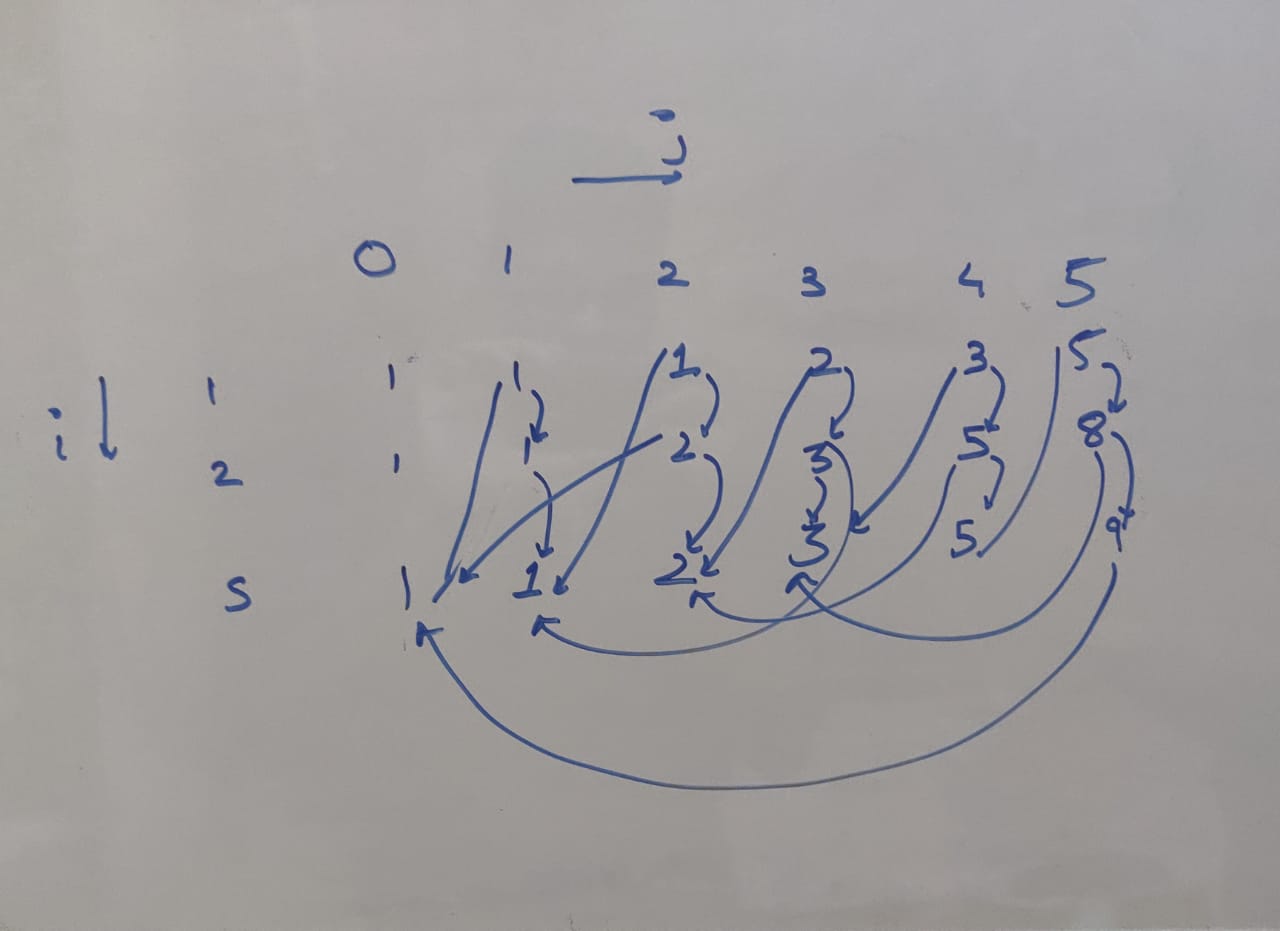 j
0 1 2 3 4 5
1 1 1 1 2 3 5
i 2 1 1 2 3 5 8
5 1 1 2 3 5 9